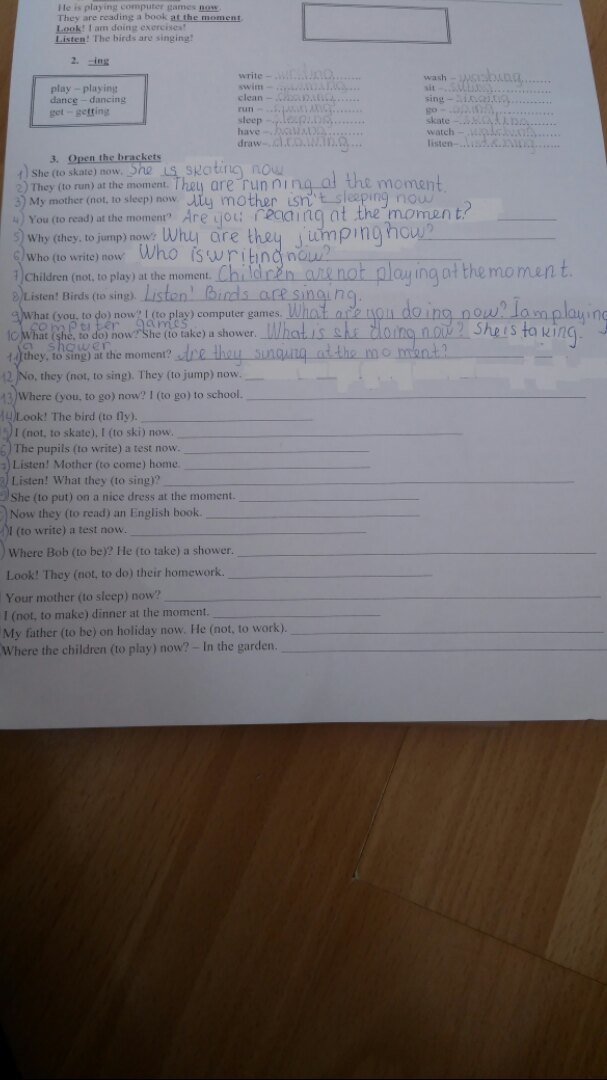 He is playing computer games now.
They are reading a book at the moment.
Look! I am doing exercises!
Listen! The birds are singing!
2. –ing
play – playing
dance – dancing
get – getting
write – writing
swim – swimming
clean – cleaning
run – running
sleep – sleeping
have – having
draw – drawing
wash – washing
sit – sitting
sing – singing
go – going
skate – skating
watch – watching
listen – listening
3. Open the brackets
1) She (to skate) now. She is skating now
2) They (to run) at the moment. They are running at the moment.
3) My mother (not, to sleep) now. My mother isn't sleeping now
4) You (to read) at the moment? Are you reading at the moment?
5) Why (they, to jump) now? Why are they jumping now?
6) Who (to write) now Who is writing now?
7) Children (not, to play) at the moment. Children are not playing at the moment.
8) Listen! Birds (to sing). Listen! Birds are singing.
9) What (you, to do) now? I (to play) computer games. What are you doing now? I am playing
computer games
10) What (she, to do) now? She (to take) a shower. What is she doing now? She is taking.
a shower
11) (they, to sing) at the moment? Are they singing at the moment?
12) No, they (not, to sing). They (to jump) now.
13) Where (you, to go) now? I (to go) to school.
14) Look! The bird (to fly).
5) I (not, to skate), I (to ski) now.
6) The pupils (to write) a test now.
) Listen! Mother (to come) home.
8) Listen! What they (to sing)?
9) She (to put) on a nice dress at the moment.
) Now they (to read) an English book.
) I (to write) a test now.
) Where Bob (to be)? He (to take) a shower.
Look! They (not, to do) their homework.
Your mother (to sleep) now?
I (not, to make) dinner at the moment.
My father (to be) on holiday now. He (not, to work).
Where the children (to play) now? – In the garden.